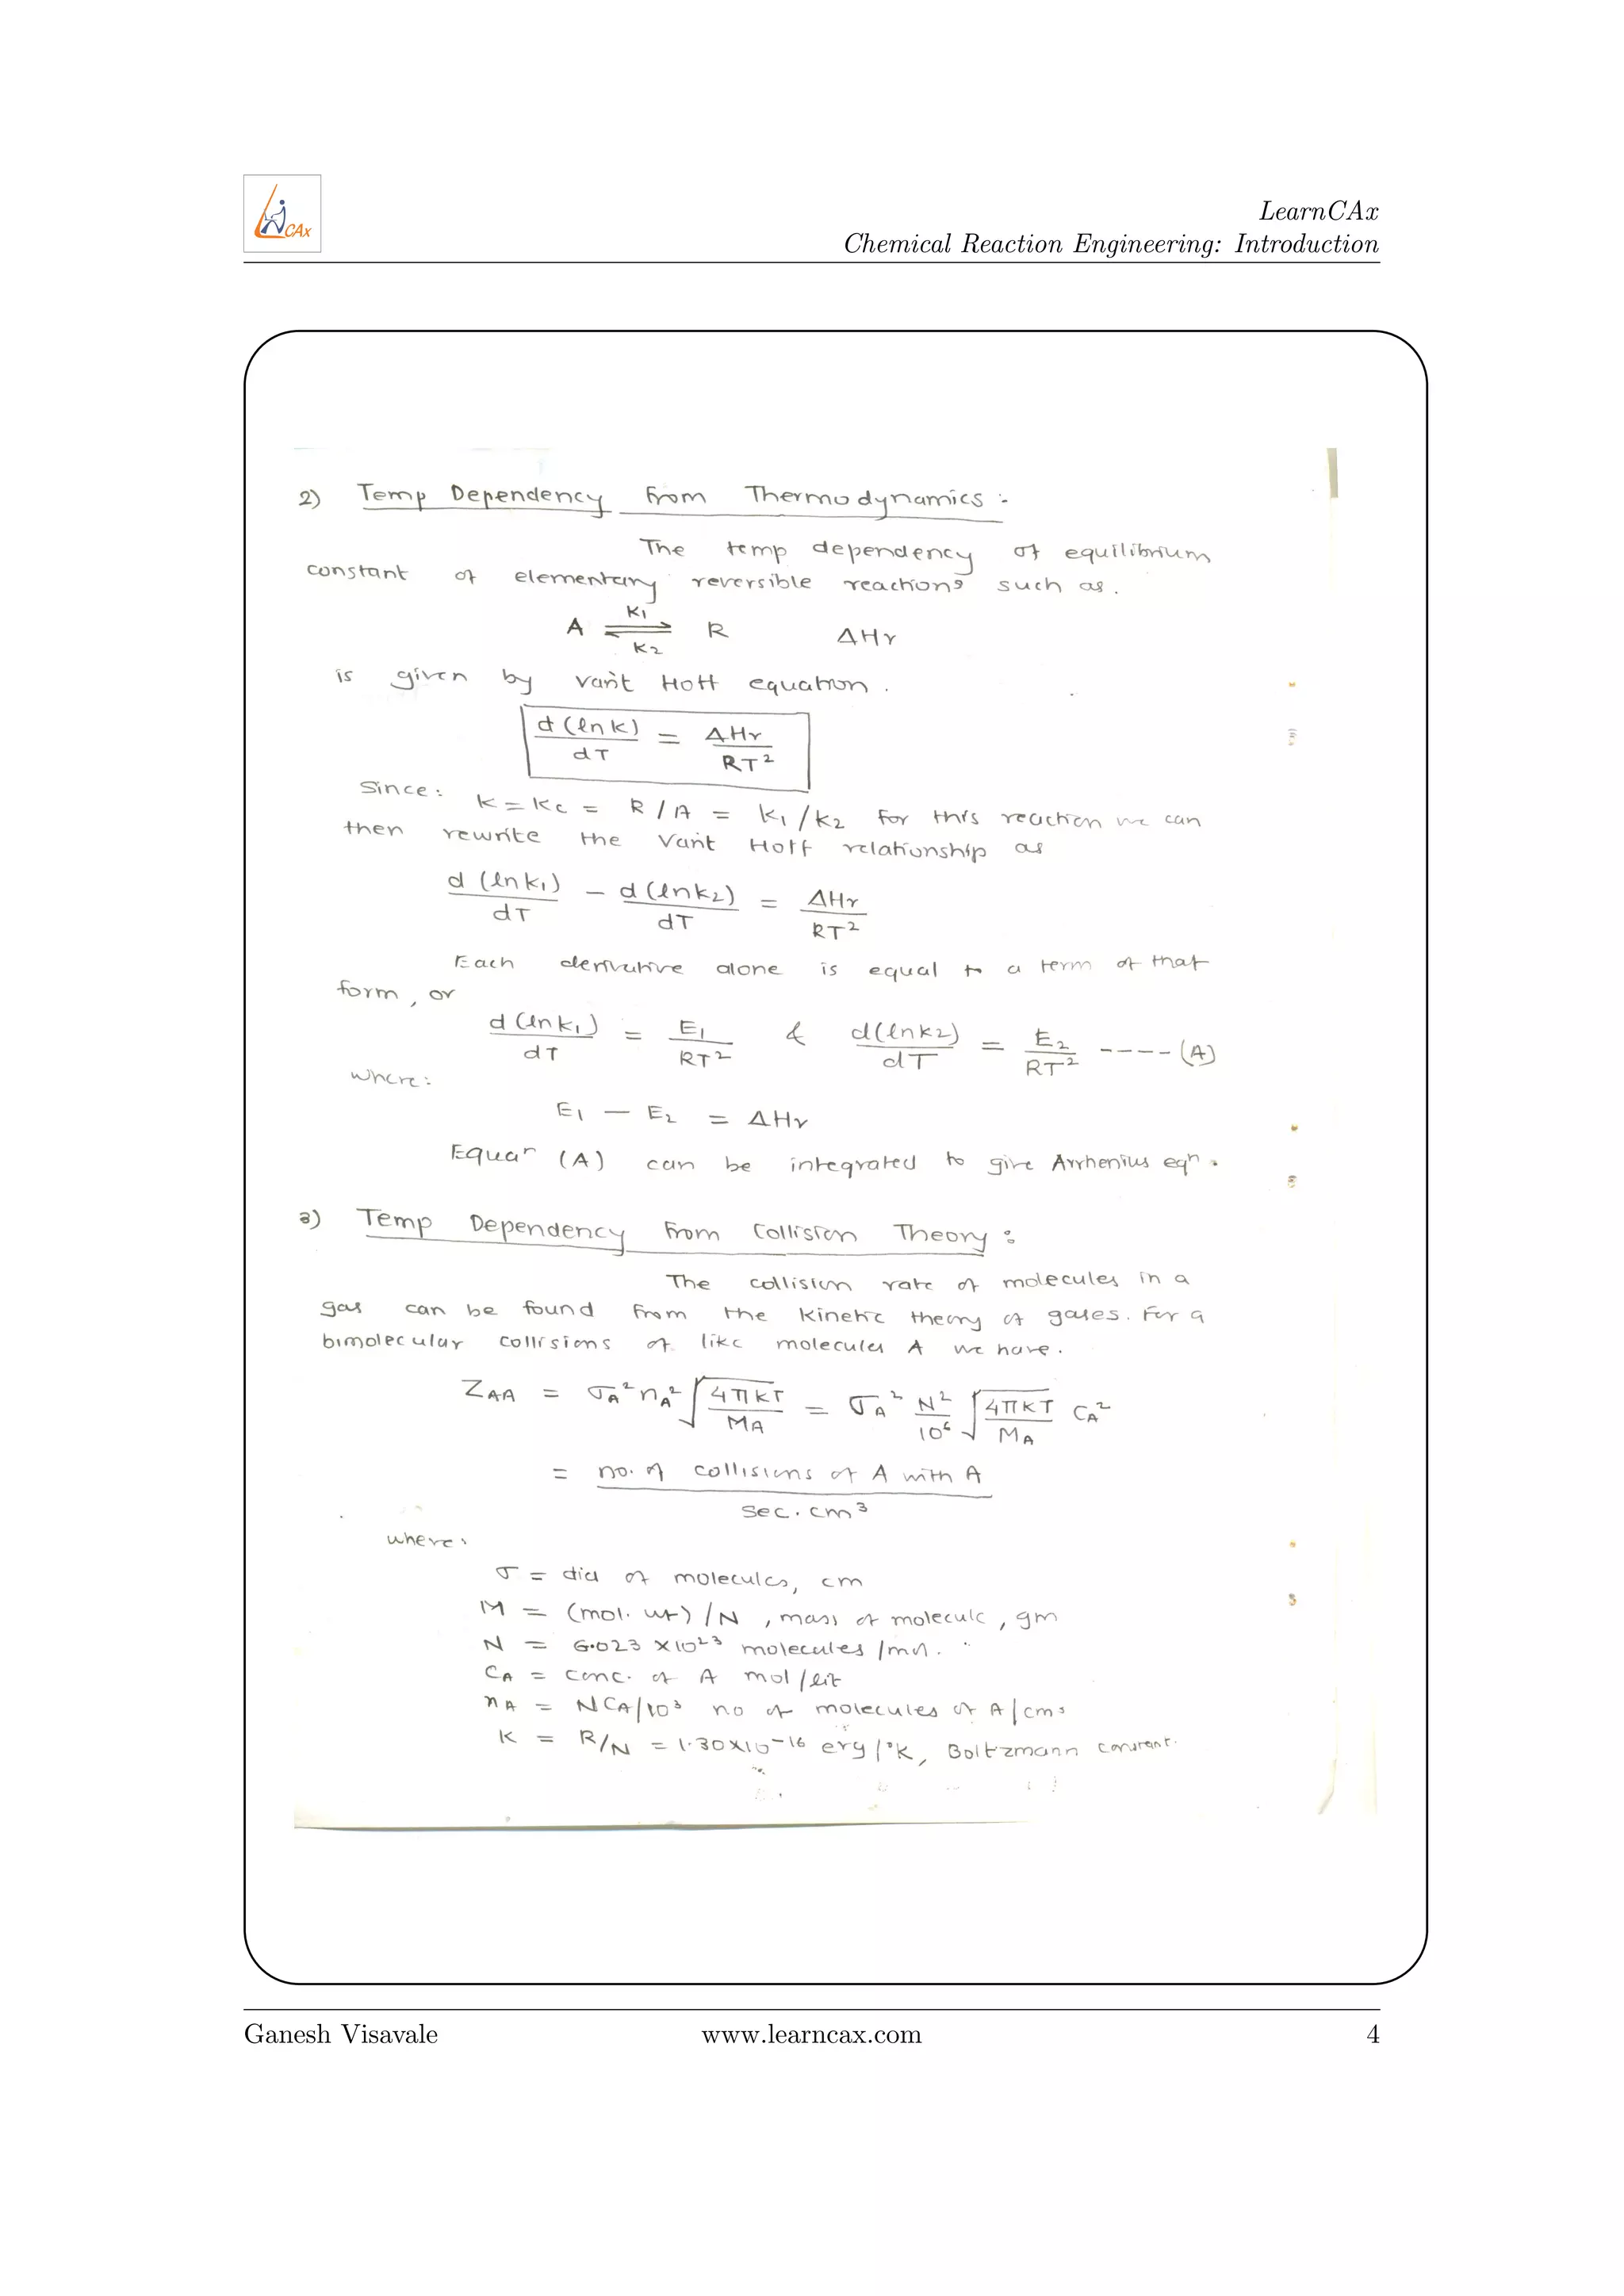 CAx
LearnCAx
Chemical Reaction Engineering: Introduction
2) Temp Dependency from Thermodynamics :-
The temp dependency of equilibrium
constant of elementary reversible reactions such as.
A ⇌ R ΔHr
K1
K2
is given by Van't Hoff equation.
d (ln K) / dT = ΔHr / RT²
Since: K = Kc = R / A = K1 / K2 for this reaction we can
then rewrite the Van't Hoff relationship as
d (ln K1) / dT - d (ln K2) / dT = ΔHr / RT²
Each derivative alone is equal to a term of that
form, or
d (ln K1) / dT = E1 / RT² & d (ln K2) / dT = E2 / RT² ---- (A)
where:
E1 — E2 = ΔHr
Equaⁿ (A) can be integrated to give Arrhenius eqⁿ.
3) Temp Dependency from Collision Theory :
The collision rate of molecules in a
gas can be found from the Kinetic theory of gases. For a
bimolecular collisions of like molecules A we have.
Z_AA = σ_A² n_A² √(4πKT / M_A) = σ_A² N² / 10⁶ √(4πKT / M_A) C_A²
= no. of collisions of A with A / sec. cm³
where:
σ = dia of molecules, cm
M = (mol. wt) / N , mass of molecule, gm
N = 6.023 × 10²³ molecules / mol.
C_A = conc. of A mol / lit
n_A = N C_A / 10³ no of molecules of A / cm³
K = R/N = 1.30×10⁻¹⁶ erg / °K, Boltzmann constant.
Ganesh Visavale www.learncax.com 4